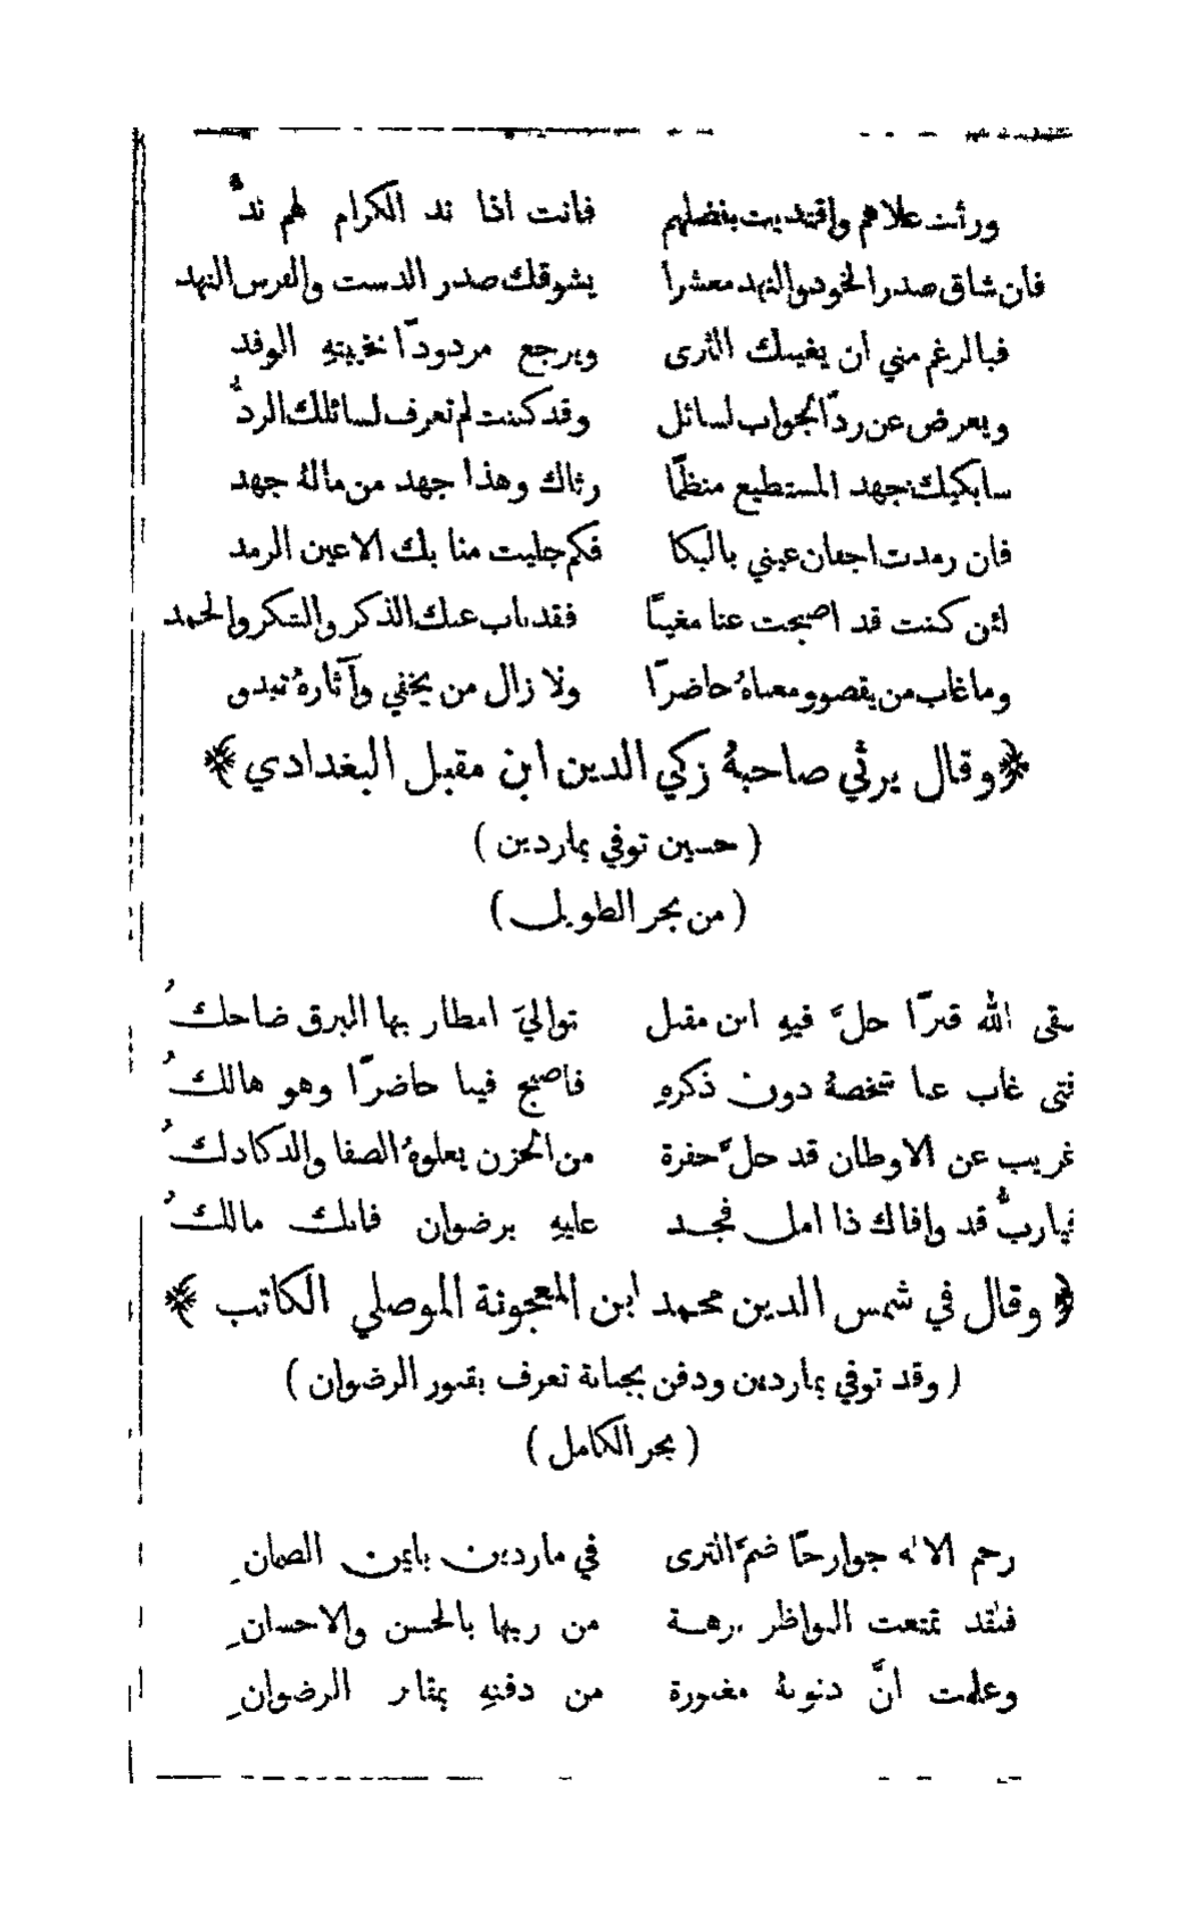 ورثت علاهم واقتديت بفضلهم فانت اذا ند الكرام لهم ندُّ
فان شاق صدر الخود والنهد معشرا يشوقك صدر الدست والفرس النهد
فبالرغم مني ان يغيبك الثرى ويرجع مردودًا بخيبتهِ الوفد
ويعرض عن ردّ الجواب لسائل وقد كنت لم تعرف لسائلك الردُّ
سابكيك جهد المستطيع منظمًا رثاك وهذا جهد من مالهُ جهد
فان رمدت اجفان عيني بالبكا فكم جليت منا بك الاعين الرمد
لئن كنت قد اصبحت عنا مغيبًا فقد ناب عنك الذكر والشكر والحمد
وما غاب من يقصو ومعناهُ حاضرًا ولا زال من يخفي وآثارهُ تبدو
﴿وقال يرثي صاحبهُ زكي الدين ابن مقبل البغدادي﴾
( حسين توفي بماردين )
( من بحر الطويل )
سقى الله قبرًا حلَّ فيهِ ابن مقبل توالي امطار بها البرق ضاحكُ
فتى غاب عنا شخصهُ دون ذكرهِ فاصبح فينا حاضرًا وهو هالكُ
غريب عن الاوطان قد حلَّ حفرة من الحزن يعلوهُ الصفا والدكادكُ
فياربُّ قد وافاك ذا امل فجد عليهِ برضوان فانك مالكُ
﴿ وقال في شمس الدين محمد ابن المعجونة الموصلي الكاتب ﴾
( وقد توفي بماردين ودفن بجبانة تعرف بقبور الرضوان )
( بحر الكامل )
رحم الاله جوارحًا ضمَّ الثرى في ماردين بايمن الصمانِ
فلقد تمتعت النواظر برهة من ربها بالحسن والاحسانِ
وعلمت انَّ ذنوبهُ مغفورة من دفنهِ بمقابر الرضوانِ